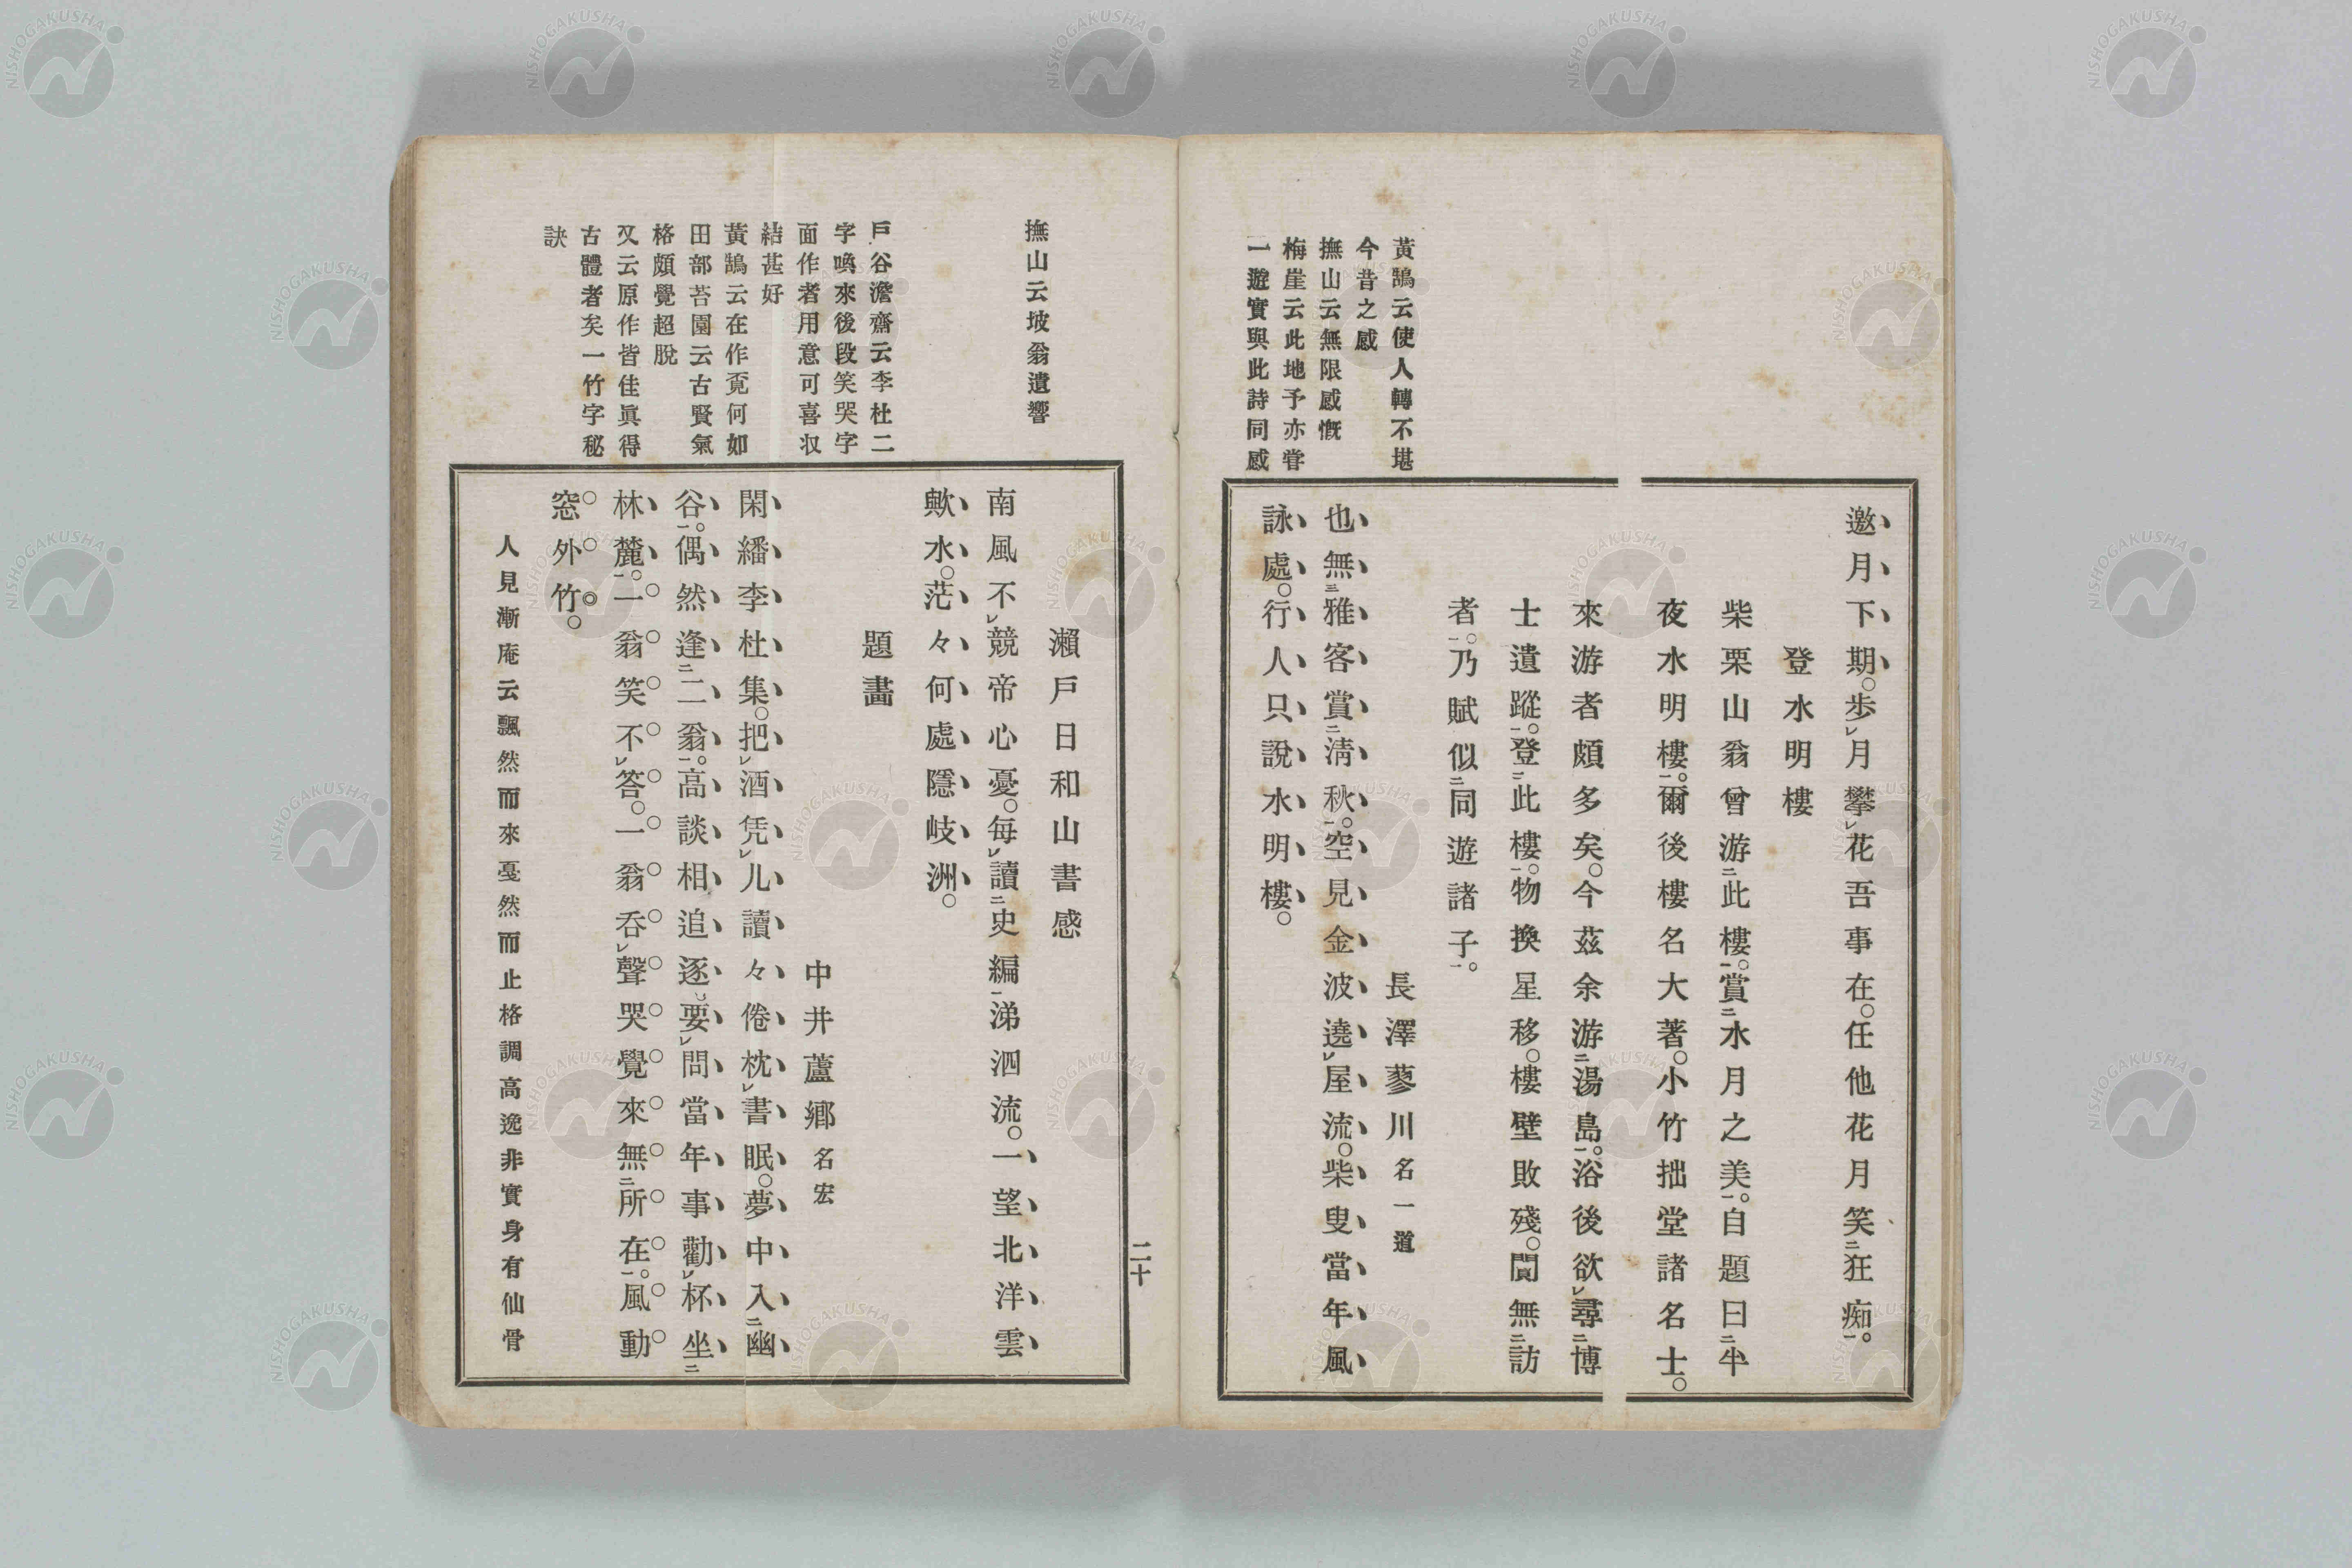 邀月下期。歩レ月攀レ花吾事在。任他花月笑二狂痴一。
登水明樓
柴栗山翁曾游二此樓一。賞二水月之美一。自題曰二半
夜水明樓一。爾後樓名大著。小竹拙堂諸名士。
來游者頗多矣。今茲余游二湯島一。浴後欲レ尋二博
士遺蹤一。登二此樓一。物換星移。樓壁敗殘。閴無二訪
者一。乃賦似二同遊諸子一。
長澤蓼川名一道
也無三雅客賞二淸秋一。空見金波遶レ屋流。柴叟當年風
詠處。行人只說水明樓。
黃鵠云使人轉不堪
今昔之感
撫山云無限感慨
梅崖云此地予亦甞
一遊實與此詩同感
二十
瀨戶日和山書感
南風不レ競帝心憂。每レ讀二史編一涕泗流。一望北洋雲
歟水。茫々何處隱岐洲。
題畵
中井蘆鄉名宏
閑繙李杜集。把レ酒凭レ儿讀々倦枕レ書眠。夢中入二幽
谷一。偶然逢二二翁一。高談相追逐。要レ問當年事勸レ杯坐二
林麓一。一翁笑不レ答。一翁呑レ聲哭覺來無二所在一。風動
窓外竹。
人見漸庵云飄然而來戞然而止格調高逸非實身有仙骨
撫山云坡翁遺響
戶谷澹齋云李杜二
字喚來後段笑哭字
面作者用意可喜収
結甚好
黃鵠云在作竟何如
田部苔園云古賢氣
格頗覺超脫
又云原作皆佳眞得
古體者矣一竹字秘
訣
NISHOGAKUSHA